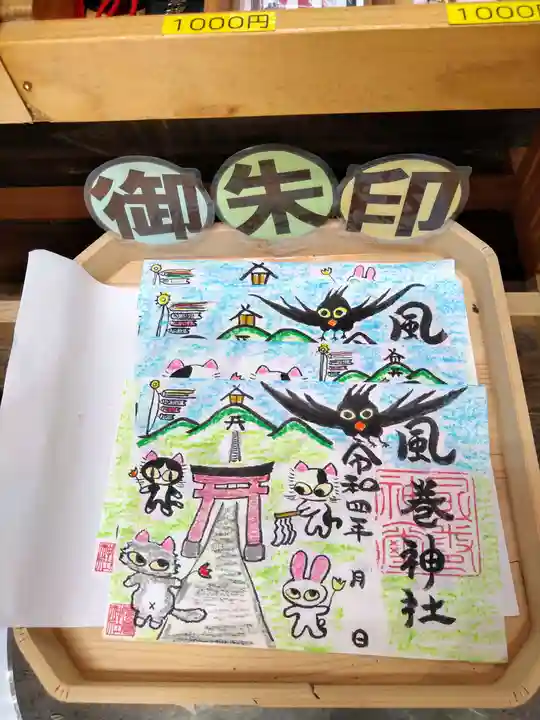 1000円
1000円
御朱印
風
風
巻神社
令和四年 月 日